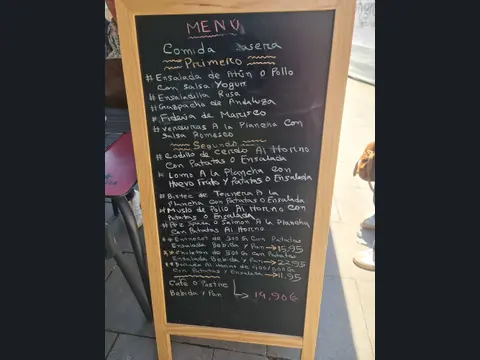 MENU
Comida Casera
Primero
# Ensalada de Atún O Pollo
con salsa Yogur
# Ensaladilla Rusa
# Guzpacho de Andaluza
# Fideua de Marisco
# Verduras A la Plancha con
Salsa Romesco
Segundo
# Codillo de cerdo Al Horno
con Patatas O Ensalada
# Lomo A la Plancha con
Huevo Frito y Patatas O Ensalada
# Bistec de Ternera A la
Plancha con Patatas O Ensalada
# Muslo de Pollo Al Horno con
Patatas O Ensalada
# Pez O Salmon A la Plancha
con Patatas Al Horno
Entrecot de 300 G Con Patatas
Ensalada Bebida y Pan → 15.95
Chuleton de 500 G con Patatas
Ensalada Bebida y Pan → 22.95
Dorada Al Horno de 400/500 G
Con Patatas y Ensalada → 11.95
Café O Postre
Bebida y Pan → 14,90€